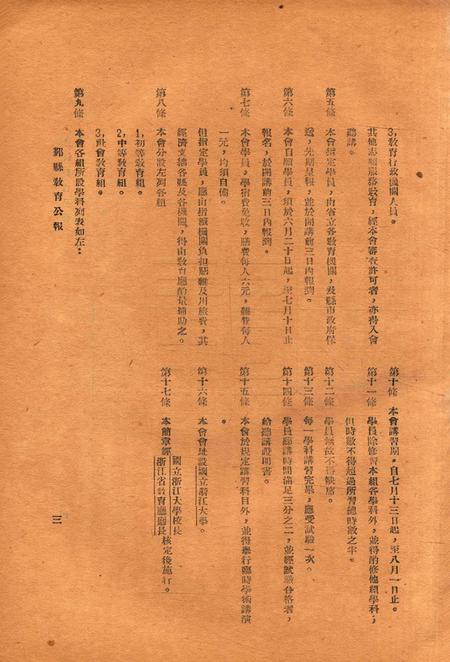 3,教育行政機關人員。
其他志願服務教育,經本會審查許可者,亦得入會
聽講。
第五條　本會指定學員,由省立各教育機關,及縣市政府保
送,先期呈報,並於開講前三日內報到。
第六條　本會自願學員,須於六月二十日起,至七月十日止
報名,於開講前三日內報到。
第七條　本會學員,學宿費免收,膳費每人六元,雜費每人
一元,均須自備。
但指定學員,應由指派機關負担膳雜及川旅費,其
經濟支絀各縣及各機關,得由敎育廳酌量補助之。
第八條　本會分設左列各組
1,初等敎育組。
2,中等敎育組。
3,社會敎育組。
第九條　本會各組所設學科列表如左:
鄞縣敎育公報
第十條　本會講習期,自七月十三日起,至八月一日止。
第十一條　學員除修習本組各學科外,並得酌修他組學科;
但時數不得超過所習總時數之半。
第十二條　學員無故不得缺席。
第十三條　每一學科講習完畢,應受試驗一次。
第十四條　學員聽講時間滿足三分之二,並經試驗合格者,
給聽講證明書。
第十五條　本會於規定講習科目外,並得舉行臨時學術講演
。
第十六條　本會會址設國立浙江大學。
第十七條　本簡章經國立浙江大學校長
浙江省敎育廳廳長核定後施行。
三